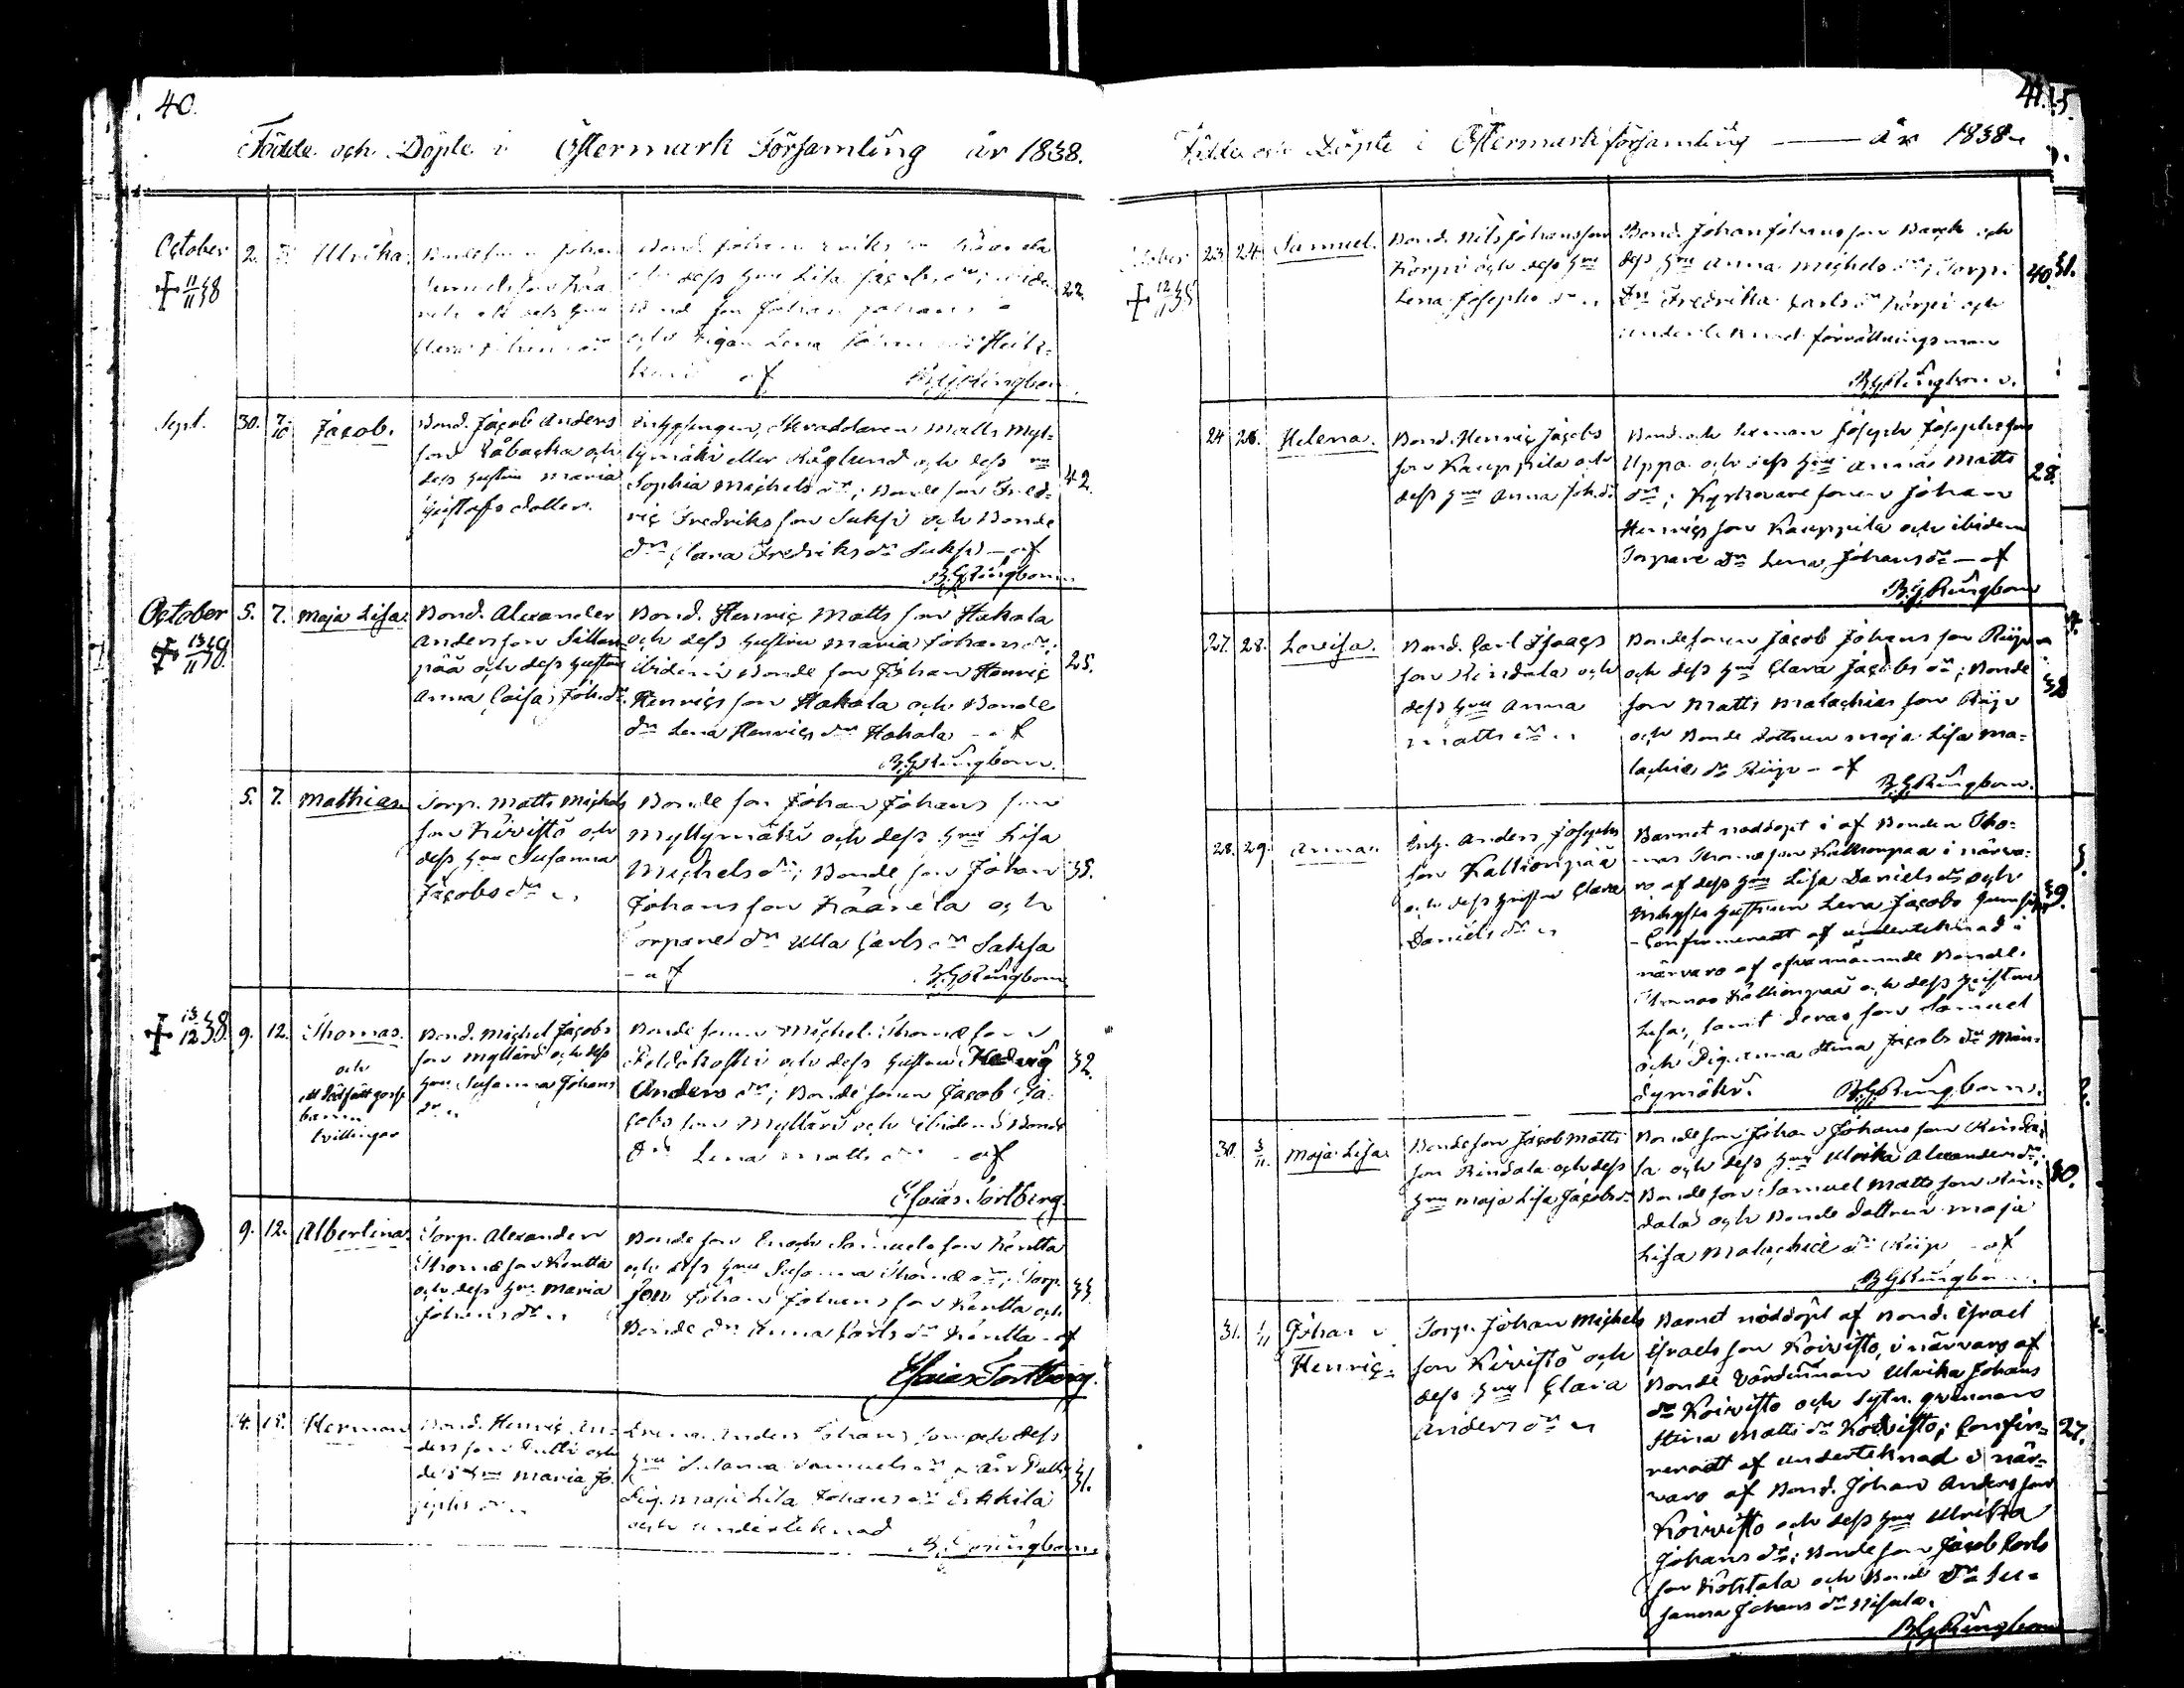 40.
Födde och Döpte i Östermark Församling år 1838.
October 2. Ulrika. Bondesonen Johan
Bond. Johan
och dess Hru Lisa Jacobs dr;
son Johan Johans
och Pigan Lena Johans
af B.G. Ringbom
22.
Sept. 30. 7/10 Jacob.
Bond. Jacob Anders
son Råbacka och
dess hustru Maria
Gustafs dotter.
Skraddaren Matts Myl-
lymäki eller Råglund och dess
Sophia Michels dr; Bonde son Fred-
ric Fredriks son Suksi och Bonde
dr Clara Fredriks dr Suksi – af
B.G. Ringbom
42.
October 5. 7. Maja Lisa.
13/11 38.
Bond. Alexander
Anders son Sillan-
pää och dess hustru
Anna Caisa Joh. dr
Bond. Henric Matts son Hakala
och dess hustru Maria Johans dr;
ibidem Bonde son Johan Henric
Henrics son Hakala och Bonde
dr Lena Henrics dr Hakala – af
B.G. Ringbom.
25.
5. 7. Mathias.
Torp. Matts Michels
son Kivistö och
dess Hru Susanna
Jacobs dr
Bonde son Johan Johans son
Myllymäki och dess Hru Lisa
Michels dr; Bonde son Johan
Johans son Kääriela och
Torpare dr Ulla Carls dr Saksa
– af B.G. Ringbom
35.
13/12 38. 9. 12. Thomas.
och
ett dödfödt gosse
barn
tvillingar
Bond. Michel Jacobs
son Mylläri och dess
Hru Susanna Johans
dr
Bonde sonen Michel Thomæ son
och dess hustru Hedvig
Anders dr; Bonde sonen Jacob Ja-
cobs son Mylläri och ibidem Bonde
dr Lena Matts dr – af
Esaias Tortberg.
32.
9. 12. Albertina.
Torp. Alexander
Thomæ son Kentta
och dess Hru Maria
Johans dr
Bonde son Enoch Samuels son Kentta
och dess Hru Susanna Thomæ dr; Torp.
son Johan Johans son Kentta och
Bonde dr Anna Carls dr Kentta – af
Esaias Tortberg.
33.
14. 15. Herman
Bond. Henric An-
ders son och
dess Hru Maria Jo-
sephs dr
Anders Johans son och dess
Hru Susanna Samuels dr
Pig. Maja Lisa Johans dr Erkkilä
och undertecknad
B.G. Ringbom.
31.
41.
Födde och Döpte i Östermark församling — år 1838
October 23 24 Samuel.
Bond. Nils Johans son
Korpi och dess Hru
Lena Josephs dr
Bond. Johan Johans son Back och
dess Hru Anna Michels dr; Torp.
Dr Fredrika Carls dr Korpi och
undertecknad förrättningsman
B.G. Ringbom.
40.
24 26. Helena.
Bond. Henric Jacobs
son Kauppila och
dess Hru Anna Joh. dr
Bond. och Sexman Joseph Josephs son
Uppa och dess Hru Anna Matts
dr; Kyrkovaresonen Johan
Henrics son Kauppila och ibidem
Torpare Dr Lena Johans dr – af
B.G. Ringbom
28.
27. 28. Lovisa.
Bond. Carl Isaacs
son Rindala och
dess Hru Anna
Matts dr
Bondesonen Jacob Johans son Riip
och dess Hru Clara Jacobs dr; Bonde
son Matts Malachias son Riip
och Bonde dottren Maja Lisa Ma-
lachiæ dr Riip – af
B.G. Ringbom.
38
28. 29. Anna.
Inh. Anders Josephs
son Kallionpää
och dess hustru Clara
Daniels dr
Barnet nöddöpt af Bonden Tho-
mas Thomæ son Kallionpää i närva-
ro af dess Hru Lisa Daniels dr och
Inhyses hustrun Lena Jacobs
– Confirmeradt af undertecknad i
närvaro af ofvannämnde Bonde.
Thomas Kallionpää och dess hustru
Lisa, samt deras son Samuel
och Pig. Anna Stina Jacobs dr Män-
tymäki. B.G. Ringbom.
39.
30. 3/11. Maja Lisa.
Bonde son Jacob Matts
son Rindala och dess
Hru Maja Lisa Jacobs dr
Bonde son Johan Johans son Rinda-
la och dess Hru Ulrika Alexanders dr;
Bonde son Samuel Matts son Rin-
dala och Bonde dottren Maja
Lisa Malachiæ dr Riip – af
B.G. Ringbom.
30.
31. 1/11 Johan
Henric
Torp. Johan Michels
son Kivistö och
dess Hru Clara
Anders dr
Barnet nöddöpt af Bond. Israel
Israels son Koivisto, i närvaro af
Bonde Värdinnan Ulrika Johans
dr Koivisto och Sytn. qvinnan
Stina Matts dr Koivisto; Confir-
meradt af undertecknad i när-
varo af Bond. Johan Anders son
Koivisto och dess Hru Ulrika
Johans dr; Bonde son Jacob Carls
son och Bond dr Su-
sanna Johans dr
B.G. Ringbom
27.